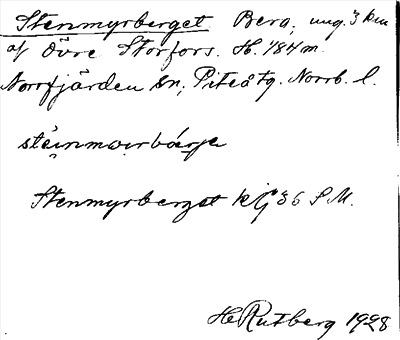 Stenmyrberget Berg, ung. 3 km
af Övre Storfors. H. 184 m.
Norrfjärden sn, Piteå tg. Norrb. l.
Stenmyrberget kG 36 S M.
H Rutberg 1928